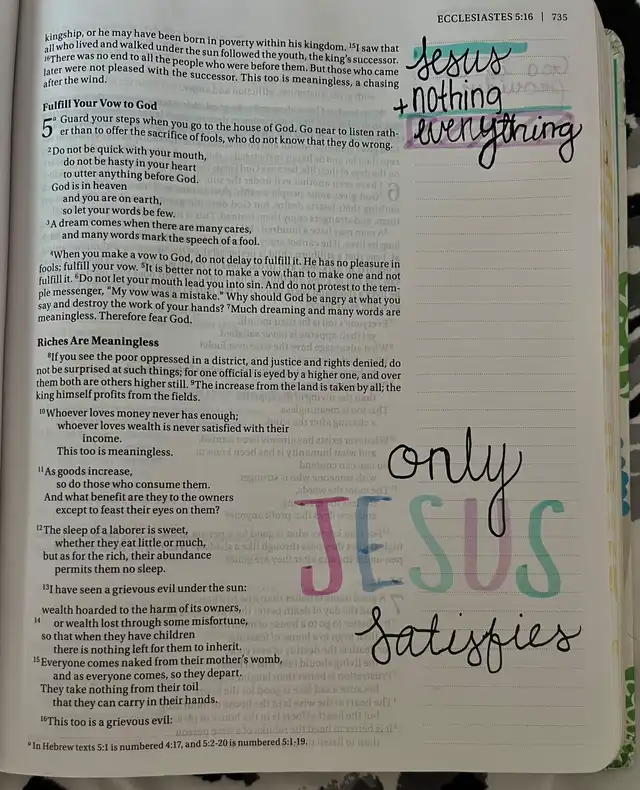 ECCLESIASTES 5:16 | 735
kingship, or he may have been born in poverty within his kingdom. 15I saw that
all who lived and walked under the sun followed the youth, the king's successor.
16There was no end to all the people who were before them. But those who came
later were not pleased with the successor. This too is meaningless, a chasing
after the wind.
Jesus
+ nothing
everything
Fulfill Your Vow to God
5a Guard your steps when you go to the house of God. Go near to listen rath-
er than to offer the sacrifice of fools, who do not know that they do wrong.
2Do not be quick with your mouth,
do not be hasty in your heart
to utter anything before God.
God is in heaven
and you are on earth,
so let your words be few.
3A dream comes when there are many cares,
and many words mark the speech of a fool.
4When you make a vow to God, do not delay to fulfill it. He has no pleasure in
fools; fulfill your vow. 5It is better not to make a vow than to make one and not
fulfill it. 6Do not let your mouth lead you into sin. And do not protest to the tem-
ple messenger, "My vow was a mistake." Why should God be angry at what you
say and destroy the work of your hands? 7Much dreaming and many words are
meaningless. Therefore fear God.
Riches Are Meaningless
8If you see the poor oppressed in a district, and justice and rights denied, do
not be surprised at such things; for one official is eyed by a higher one, and over
them both are others higher still. 9The increase from the land is taken by all; the
king himself profits from the fields.
10Whoever loves money never has enough;
whoever loves wealth is never satisfied with their
income.
This too is meaningless.
11As goods increase,
so do those who consume them.
And what benefit are they to the owners
except to feast their eyes on them?
12The sleep of a laborer is sweet,
whether they eat little or much,
but as for the rich, their abundance
permits them no sleep.
13I have seen a grievous evil under the sun:
wealth hoarded to the harm of its owners,
14 or wealth lost through some misfortune,
so that when they have children
there is nothing left for them to inherit.
15Everyone comes naked from their mother's womb,
and as everyone comes, so they depart.
They take nothing from their toil
that they can carry in their hands.
16This too is a grievous evil:
only
JESUS
satisfies
a In Hebrew texts 5:1 is numbered 4:17, and 5:2-20 is numbered 5:1-19.